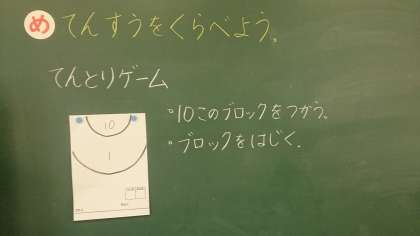 め てんすうをくらべよう。
てんとりゲーム
・10このブロックをつかう。
・ブロックをはじく.
10
1